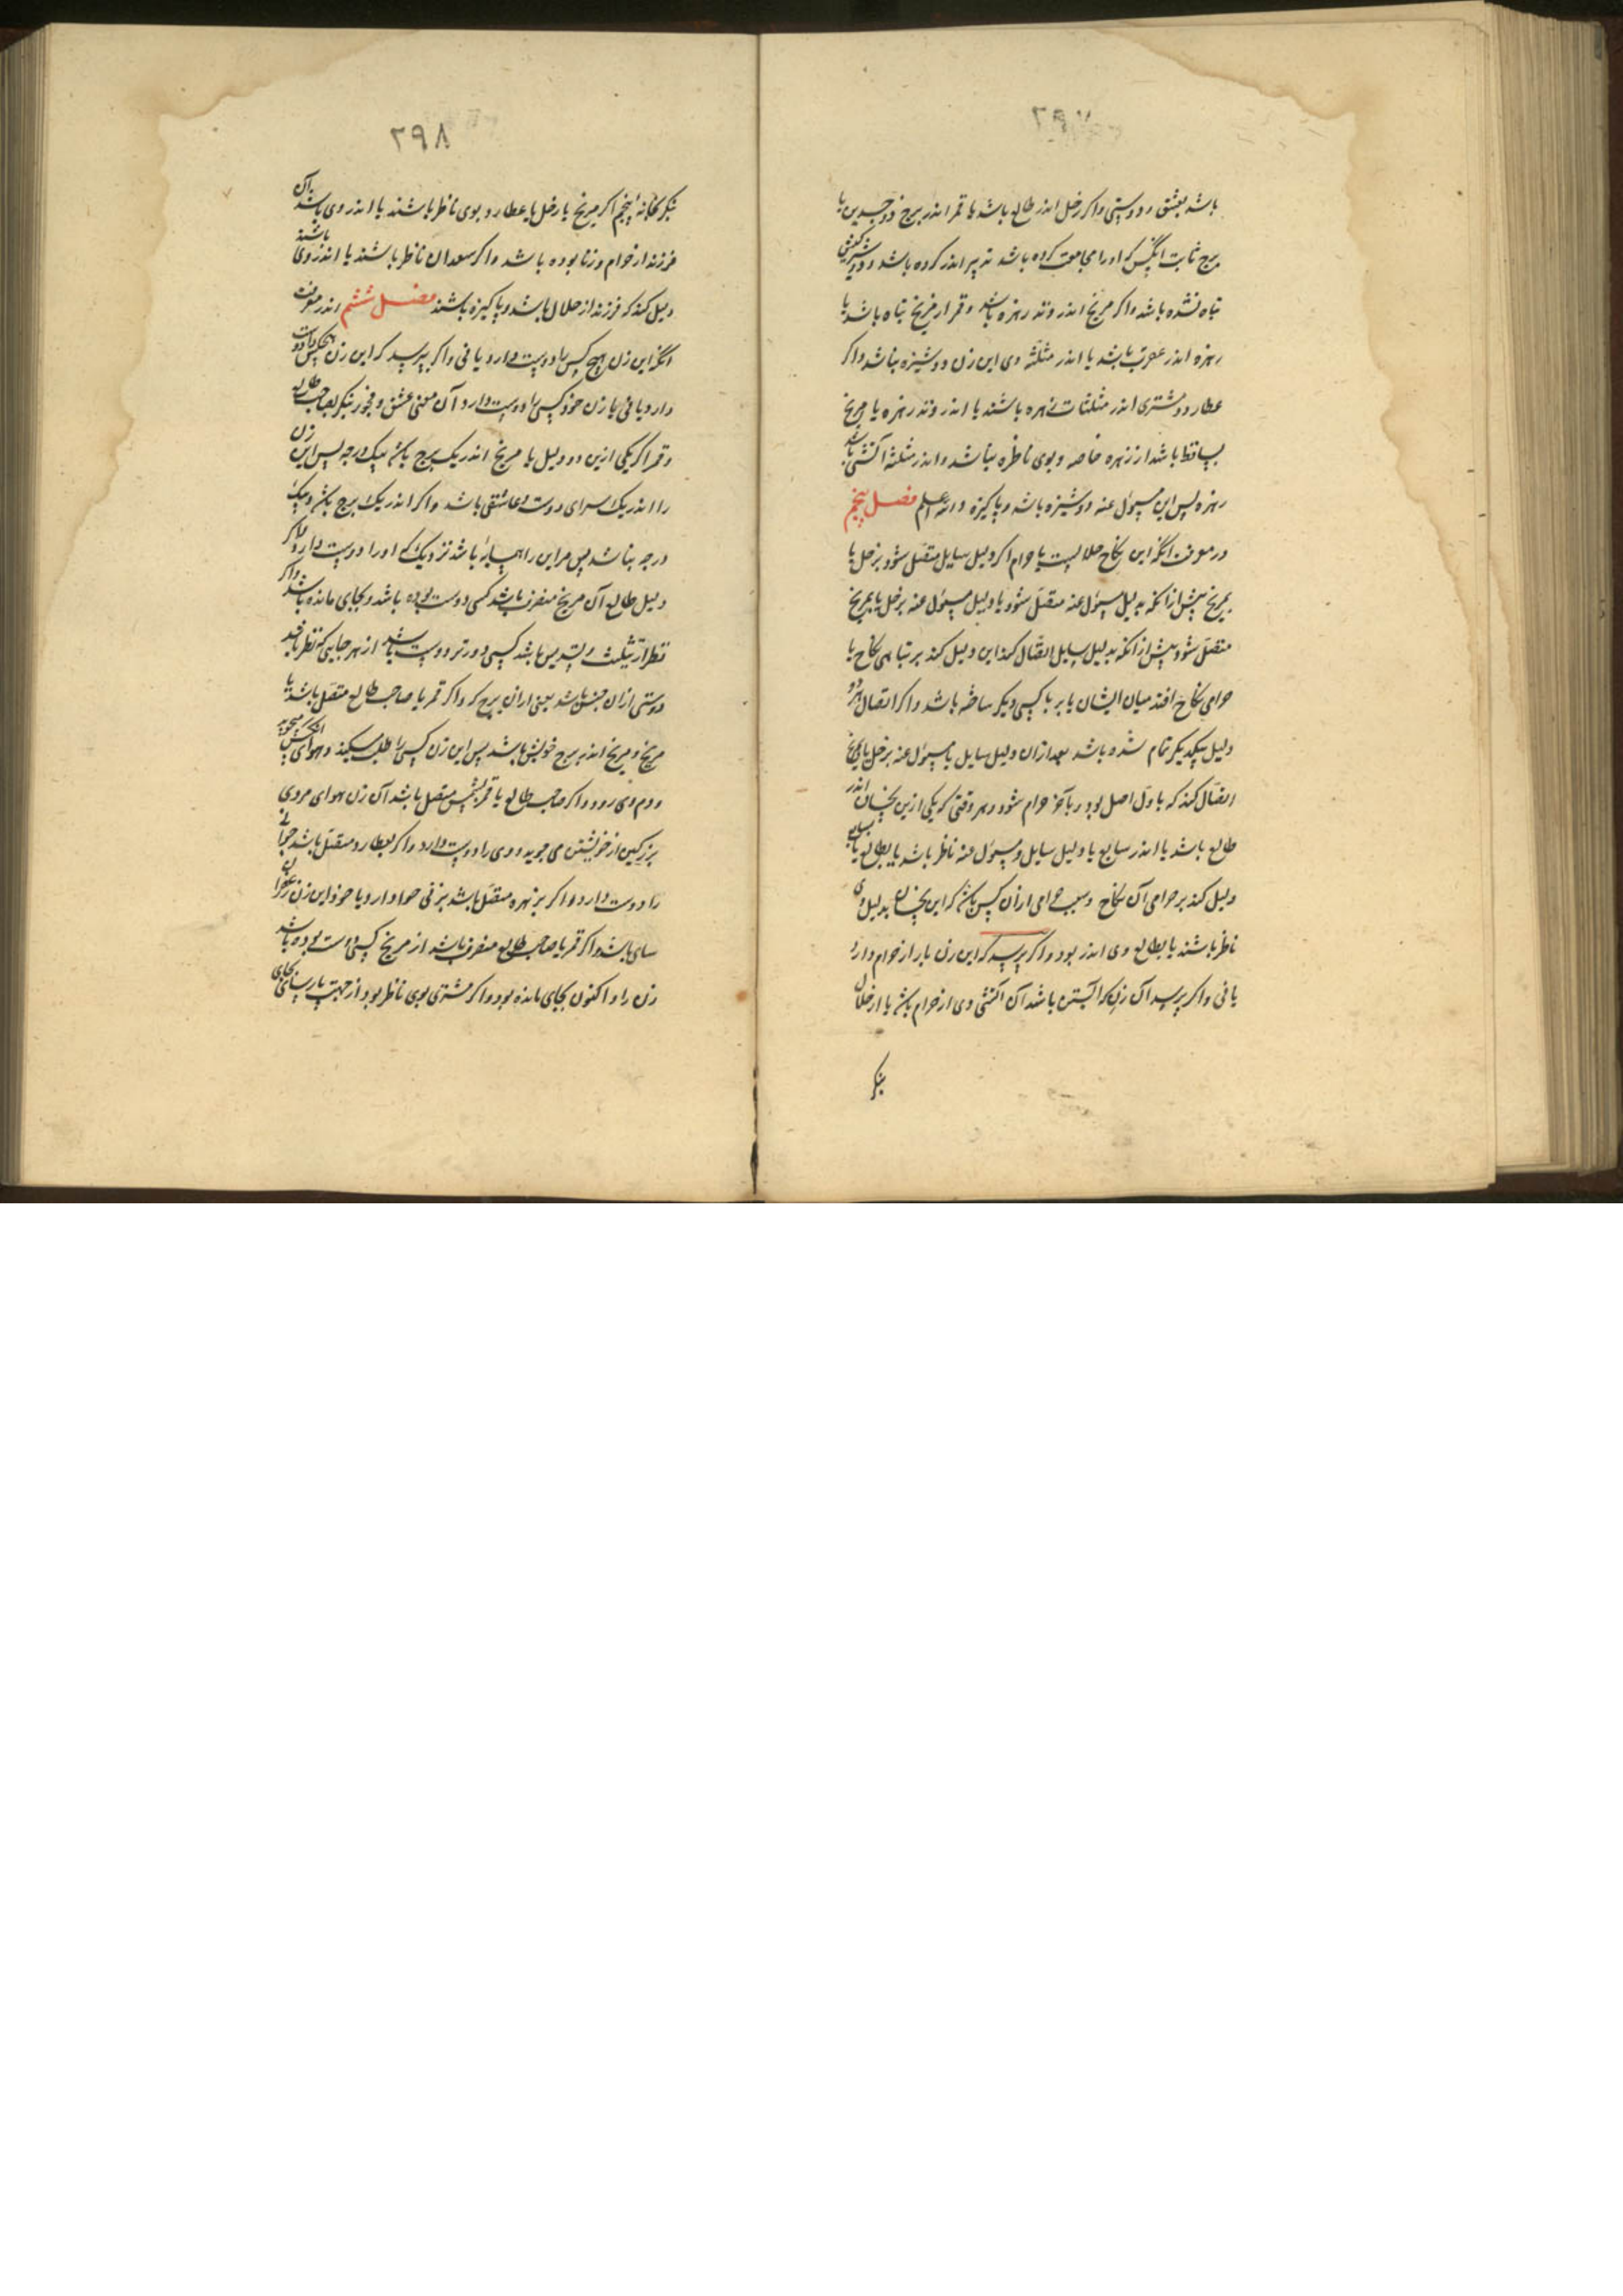 ۲۹۷
باشد بعشق و دوستی و اگر زحل اندر طالع باشد یا قمر اندر برج ذو جسدین یا
برج ثابت انکس که او را مجامعت کرده باشد تدبیر اندر کرده باشد و دوشیزگیش
تباه نشده باشد و اکر مریخ اندر وتد زهره باشد و قمر از مریخ تباه باشد یا
زهره اندر عقرب باشد یا اندر مثلثه وی این زن دوشیزه نباشد و اکر
عطارد و مشتری اندر مثلثات زهره باشند یا اندر وتد زهره یا مریخ
ساقط باشد از زهره خاصه و بوی ناظره نباشد و اندر مثلثه آتشی باشد
زهره پس این مسول عنه دوشیزه باشد و پاکیزه والله اعلم فصل پنجم
در معرفت انکه این نکاح حلالست یا حرام اکر دلیل سایل متصل شود بزحل یا
بمریخ پیش از انکه بدلیل مسول عنه متصل شود یا دلیل مسول عنه بزحل یا بمریخ
متصل شود پیش از انکه بدلیل سایل اتصال کند این دلیل کند بر تباهی نکاح یا
حرامی نکاح افتد میان ایشان یا بر با کسی دیکر ساخته باشد و اکر اتصال هر دو
دلیل بیکدیکر تمام شده باشد بعد ازان دلیل سایل یا مسول عنه بزحل یا بمریخ
اتصال کند که باول اصل بود و بآخر حرام شود و هر وقتی که یکی ازین نحسان اندر
طالع باشد یا اندر سابع یا دلیل سایل و مسول عنه ناظر باشد یا بطالع یا بسابع
دلیل کند بر حرامی آن نکاح و سبب حرامی ازان کس باشد که این نحسان بدلیل وی
ناظر باشند یا بطالع وی اندر بود و اکر پرسد که این زن بار از حرام دارد
یا نی و اکر پرسد آن زن که آبستن باشد آن آبستنی وی از حرام باشد یا از حلال
بنکر
۲۹۸
بنکر بخانه پنجم اکر مریخ یا زحل یا عطارد بوی ناظر باشند یا اندر وی باشند آن
فرزند از حرام و زنا بوده باشد و اکر سعدان ناظر باشند یا اندر وی باشند
دلیل کند که فرزند از حلال باشد و پاکیزه باشند فصل ششم اندر معرفت
انکه این زن هیچ کس را دوست دارد یا نی و اکر بپرسد که این زن هیچکس را دوست
دارد یا نی یا زن خود کسی را دوست دارد آن معنی عشق و فجور بنکر بصاحب طالع
و قمر اکر یکی ازین دو دلیل با مریخ اندر یک برج باشد بیک درجه پس این زن
را اندر یک سرای دوست و عاشقی باشد و اکر اندر یک برج باشد و بیک
درجه نباشد پس مر این را همسایه باشد نزدیک که او را دوست دارد و اکر
دلیل طالع آن مریخ منصرف باشد کسی دوست بوده باشد و بجای مانده باشد و اکر
نظر از تثلیث و تسدیس باشد کسی دورتر دوست باشد از هر جایی که نظر باشد
دوستی ازان جنس باشد یعنی ازان برج که و اکر قمر یا صاحب طالع متصل باشد با
مریخ و مریخ اندر برج خویش باشد پس این زن کسی را طلب میکند و بهوای انکس میجوید
و دم وی رود و اکر صاحب طالع یا قمر بشمس متصل باشد آن زن بهوای مردی
بزرگین از خویشتن می جوید و وی را دوست دارد و اکر بعطارد متصل باشد جوانی
را دوست دارد و اکر بزهره متصل باشد بزنی هوا دارد یا خود این زن زعفران
سای باشد و اکر قمر یا صاحب طالع منصرف باشد از مریخ کسی دوست بوده باشد
زن را و اکنون بجای مانده بود و اکر مشتری بوی ناظر بود از جهت پارسایی بجای